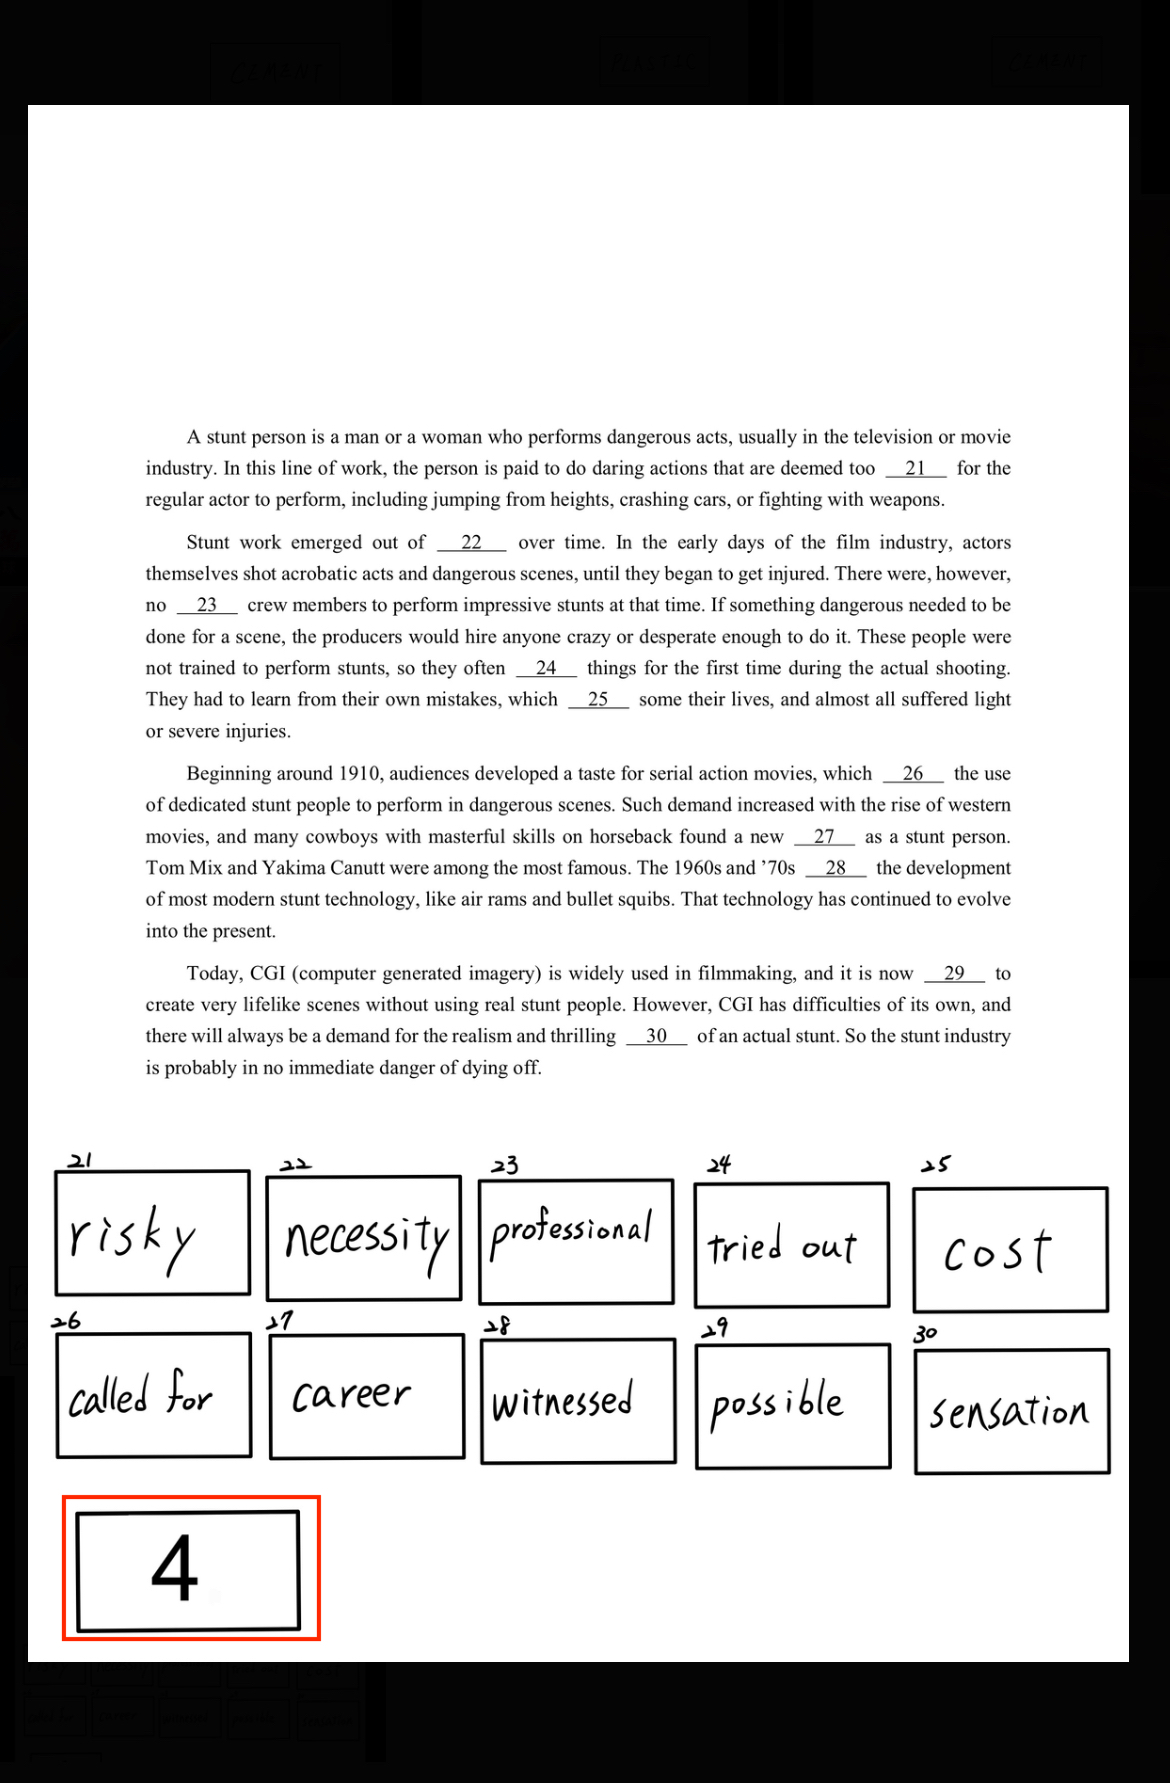 A stunt person is a man or a woman who performs dangerous acts, usually in the television or movie
industry. In this line of work, the person is paid to do daring actions that are deemed too 21 for the
regular actor to perform, including jumping from heights, crashing cars, or fighting with weapons.
Stunt work emerged out of 22 over time. In the early days of the film industry, actors
themselves shot acrobatic acts and dangerous scenes, until they began to get injured. There were, however,
no 23 crew members to perform impressive stunts at that time. If something dangerous needed to be
done for a scene, the producers would hire anyone crazy or desperate enough to do it. These people were
not trained to perform stunts, so they often 24 things for the first time during the actual shooting.
They had to learn from their own mistakes, which 25 some their lives, and almost all suffered light
or severe injuries.
Beginning around 1910, audiences developed a taste for serial action movies, which 26 the use
of dedicated stunt people to perform in dangerous scenes. Such demand increased with the rise of western
movies, and many cowboys with masterful skills on horseback found a new 27 as a stunt person.
Tom Mix and Yakima Canutt were among the most famous. The 1960s and ’70s 28 the development
of most modern stunt technology, like air rams and bullet squibs. That technology has continued to evolve
into the present.
Today, CGI (computer generated imagery) is widely used in filmmaking, and it is now 29 to
create very lifelike scenes without using real stunt people. However, CGI has difficulties of its own, and
there will always be a demand for the realism and thrilling 30 of an actual stunt. So the stunt industry
is probably in no immediate danger of dying off.
21 22 23 24 25
risky necessity professional tried out cost
26 27 28 29 30
called for career witnessed possible sensation
4